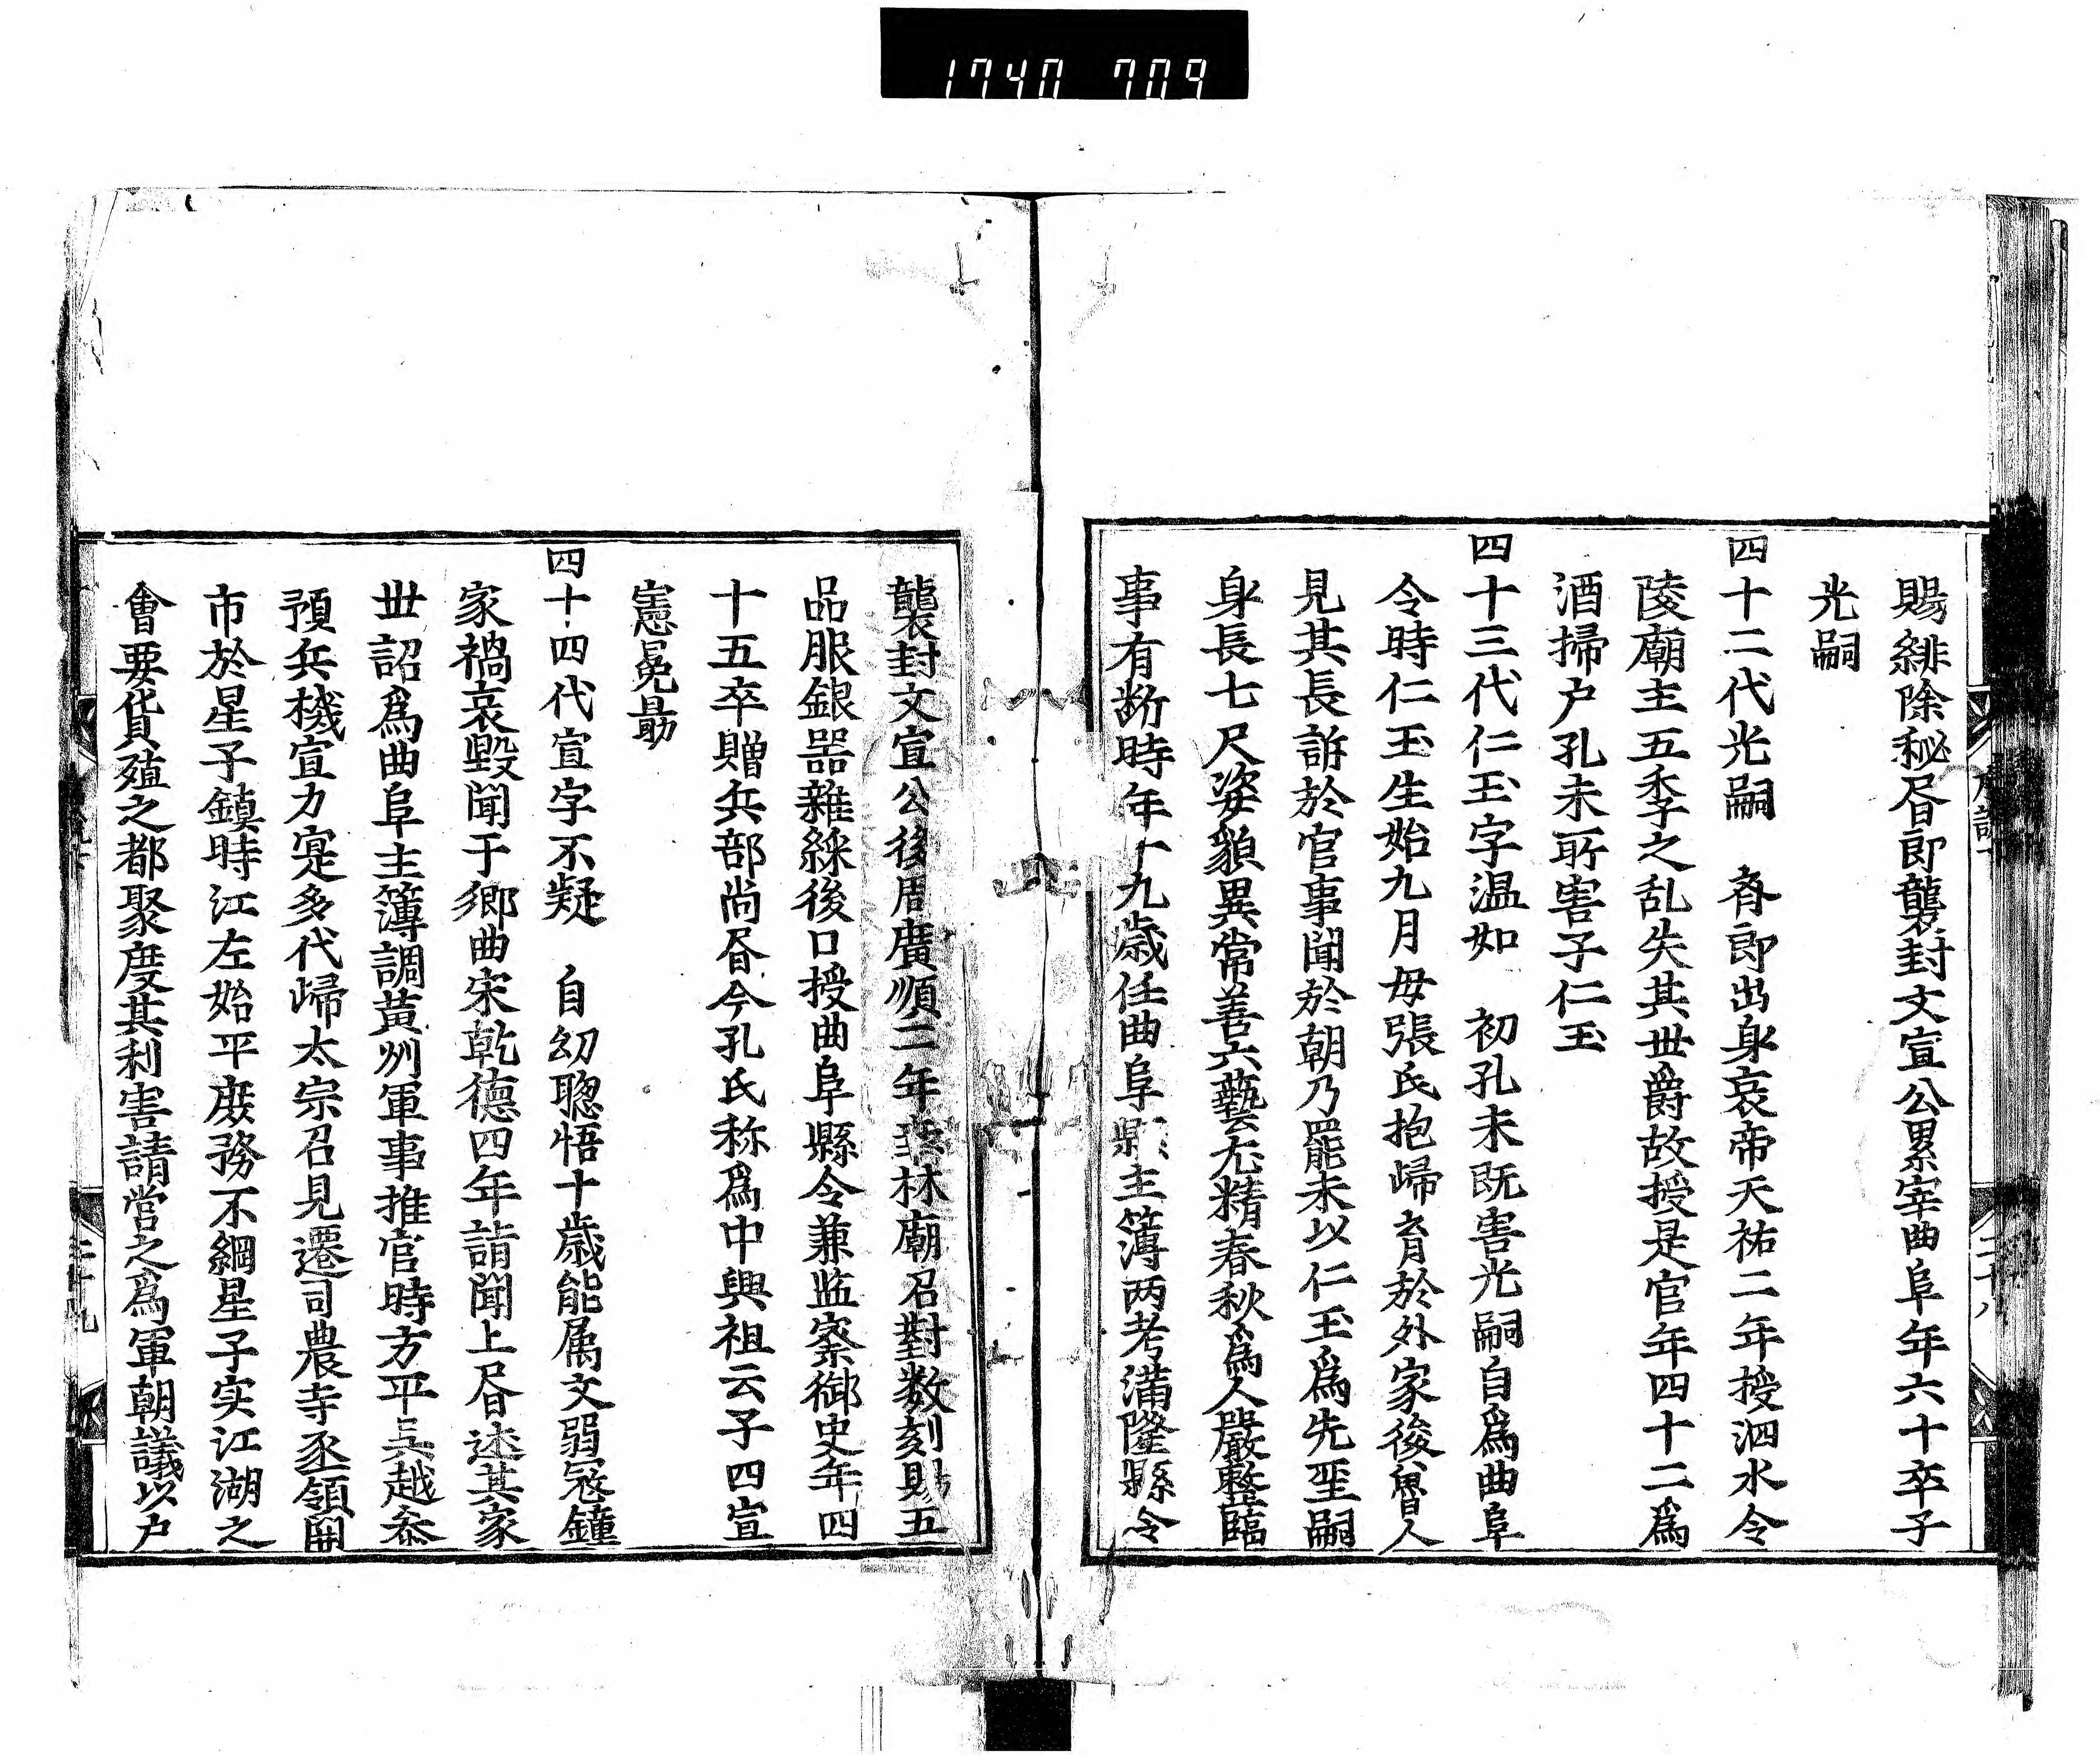 1740 709
賜緋除秘㫪郎襲封文宣公累宰曲阜年六十卒子
光嗣
四十二代光嗣 斉郎出身哀帝天祐二年授泗水令
陵廟主五季之乱失其世爵故授是官年四十二爲
酒掃户孔末所害子仁玉
四十三代仁玉字温如 初孔末既害光嗣自爲曲阜
令時仁玉生始九月毋張氏抱歸育於外家後魯人
見其長訴於官事聞於朝乃罷末以仁玉爲先聖嗣
身長七尺姿貌異常善六藝尤精春秋爲人嚴整臨
事有断時年十九歳任曲阜縣主簿两考満隆縣令
襲封文宣公後周廣順二年 林廟召對数刻賜五
品服銀器雜綵後口授曲阜縣令兼监察御史年四
十五卒贈兵部尚㫪今孔氏称爲中興祖云子四宣
憲冕勗
四十四代宣字不疑 自㓜聦悟十歳能属文弱冠鐘
家禍哀毀聞于鄉曲宋乾德四年詣闕上㫪述其家
世詔爲曲阜主簿調黃州軍事推官時方平吳越叅
預兵機宣力寔多代歸太宗召見遷司農寺丞領開
市於星子鎮時江左始平庶務不綱星子实江湖之
會要貨殖之都聚度其利害請営之爲軍朝議以户